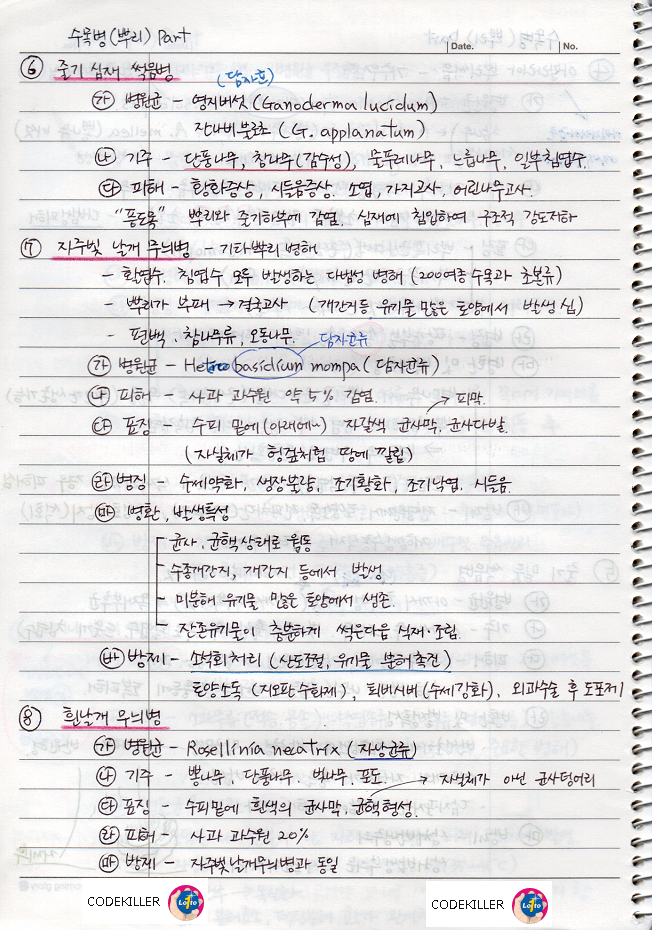 수목병(뿌리) Part
Date.
No.
⑥ 줄기 심재 썩음병
(담자균)
㉮ 병원균 - 영지버섯 (Ganoderma lucidum)
잔나비불로초 (G. applanatum)
㉯ 기주 - 단풍나무, 참나무(감수성), 물푸레나무, 느릅나무, 일부침엽수.
㉰ 피해 - 황화증상, 시들음증상, 소엽, 가지고사, 어린나무고사.
뿌리와 줄기하부에 감염. 심재에 침입하여 구조적 강도저하
⑦ 자주빛 날개 무늬병 - 기타뿌리병해
- 활엽수, 침엽수 모두 발생하는 다범성 병해 (200여종 수목과 초본류)
- 뿌리가 부패 → 결국고사 (개간지등, 유기물 많은 토양에서 발생 심)
- 편백, 참나무류, 오동나무.
담자균류
㉮ 병원균 - Helicobasidium mompa (담자균류)
㉯ 피해 - 사과 과수원 약 5% 감염.
→ 피막.
㉰ 표징 - 수피 밑에 (아래에~) 자갈색 균사막, 균사다발.
(자실체가 헝겊처럼 땅에 깔림)
㉱ 병징 - 수세약화, 생장불량, 조기황화, 조기낙엽, 시들음.
㉲ 병환, 발생특성
균사, 균핵 상태로 월동
수종개간지, 개간지 등에서 발생
- 미분해 유기물 많은 토양에서 생존.
잔존유기물이 충분하게 썩은다음 식재·조림.
㉳ 방제 - 소석회처리 (산도조절, 유기물 분해촉진)
토양소독 (지오판수화제), 퇴비시비 (수세강화), 외과수술 후 도포제
⑧ 흰날개 무늬병
㉮ 병원균 - Rosellinia necatrix (자낭균류)
㉯ 기주 - 뽕나무, 단풍나무, 벚나무, 포도.
→ 자실체가 아닌 균사덩어리
㉰ 표징 - 수피밑에 흰색의 균사막, 균핵형성.
㉱ 피해 - 사과 과수원 20%
㉲ 방제 - 자주빛날개무늬병과 동일
CODEKILLER
Lotto
CODEKILLER
Lotto